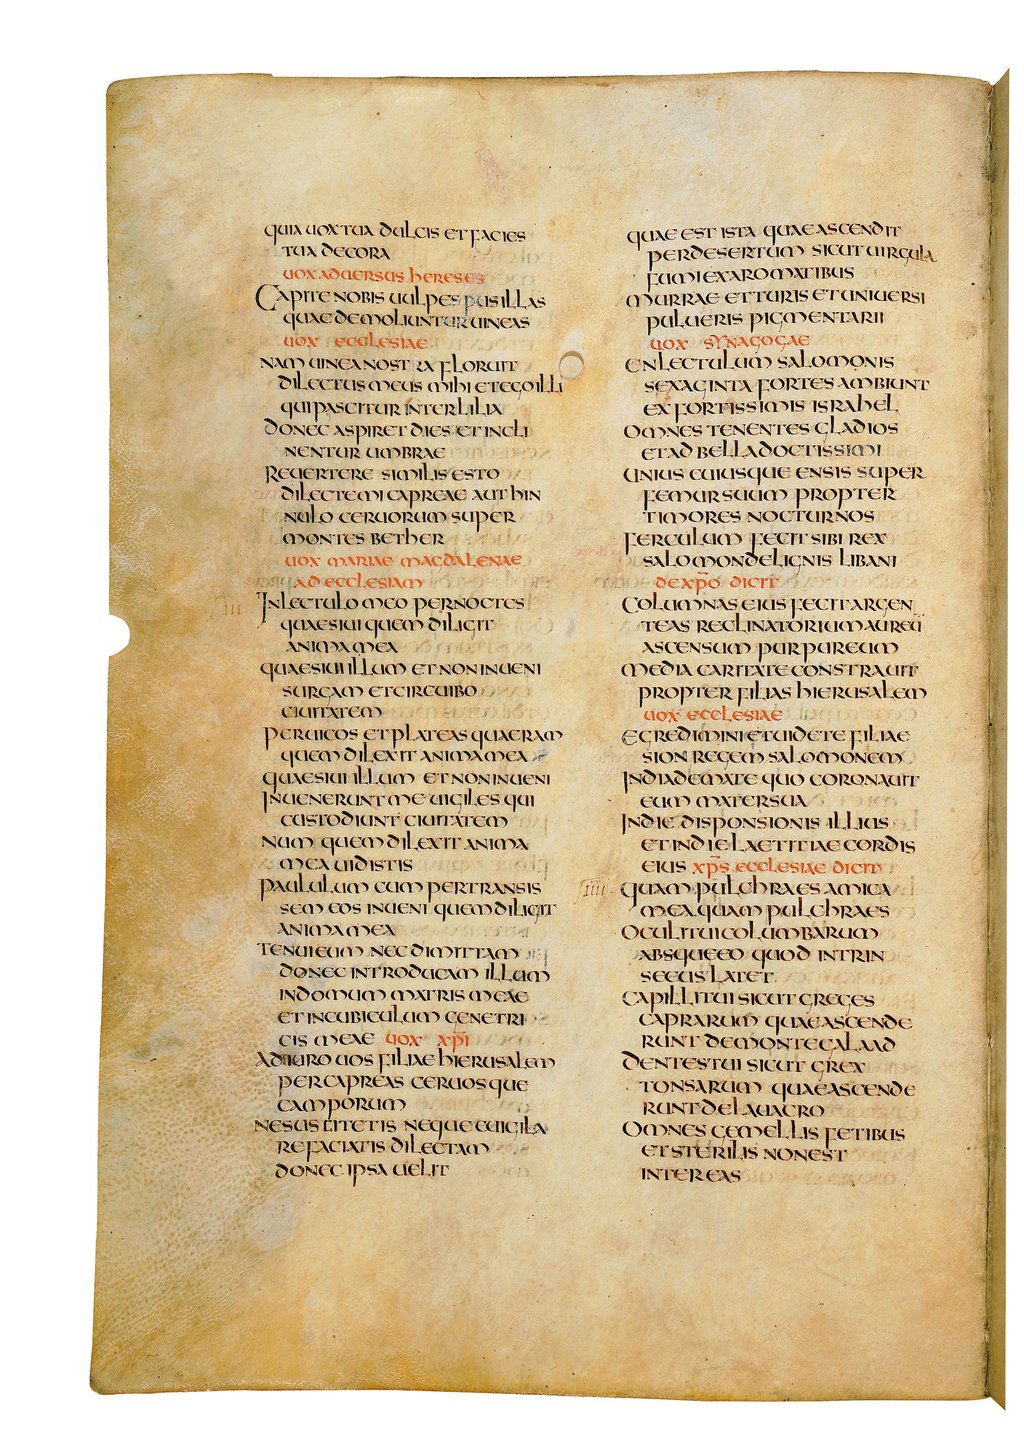 quia uox tua dulcis et facies
tua decora
uox aduersus hereses
Capite nobis uulpes pusillas
quae demoliuntur uineas
uox ecclesiae
nam uinea nostra floruit
dilectus meus mihi et ego illi
qui pascitur inter lilia
donec aspiret dies et incli
nentur umbrae
Reuertere similis esto
dilecte mi capreae aut hin
nulo ceruorum super
montes bether
uox mariae magdalenae
ad ecclesiam
III
In lectulo meo per noctes
quaesiui quem diligit
anima mea
quaesiui illum et non inueni
surgam et circuibo
ciuitatem
per uicos et plateas quaeram
quem dilexit anima mea
quaesiui illum et non inueni
Inuenerunt me uigiles qui
custodiunt ciuitatem
num quem dilexit anima
mea uidistis
paululum cum pertransis
sem eos inueni quem diligit
anima mea
tenui eum nec dimittam
donec introducam illum
in domum matris meae
et in cubiculum genetri
cis meae uox xpi
Adiuro uos filiae hierusalem
per capreas ceruosque
camporum
ne suscitetis neque euigila
re faciatis dilectam
donec ipsa uelit
quae est ista quae ascendit
per desertum sicut uirgula
fumi ex aromatibus
murrae et turis et uniuersi
pulueris pigmentarii
uox synagogae
En lectulum salomonis
sexaginta fortes ambiunt
ex fortissimis israhel
omnes tenentes gladios
et ad bella doctissimi
unius cuiusque ensis super
femur suum propter
timores nocturnos
ferculum fecit sibi rex
salomon de lignis libani
de xpo dicit
Columnas eius fecit argen
teas reclinatorium aureū
ascensum purpureum
media caritate constrauit
propter filias hierusalem
uox ecclesiae
Egredimini et uidete filiae
sion regem salomonem
In diademate quo coronauit
eum mater sua
In die disponsionis illius
et in die laetitiae cordis
eius xps ecclesiae dicit
IIII
quam pulchra es amica
mea quam pulchra es
oculi tui columbarum
absque eo quod intrin
secus latet
Capilli tui sicut greges
caprarum quae ascende
runt de monte galaad
dentes tui sicut grex
tonsarum quae ascende
runt de lauacro
omnes gemellis fetibus
et sterilis non est
inter eas